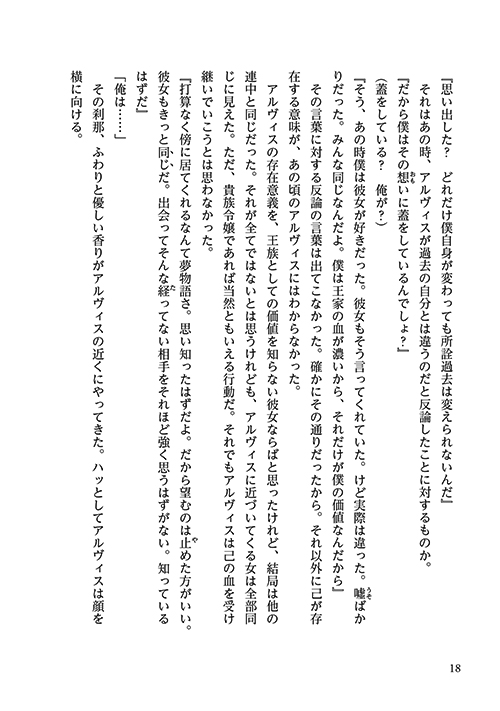 『思い出した？　どれだけ僕自身が変わっても所詮過去は変えられないんだ』
　それはあの時、アルヴィスが過去の自分とは違うのだと反論したことに対するものか。
『だから僕はその想いに蓋をしているんでしょ？』
（蓋をしている？　俺が？）
『そう、あの時僕は彼女が好きだった。彼女もそう言ってくれていた。けど実際は違った。嘘ばか
りだった。みんな同じなんだよ。僕は王家の血が濃いから、それだけが僕の価値なんだから』
　その言葉に対する反論の言葉は出てこなかった。確かにその通りだったから。それ以外に己が存
在する意味が、あの頃のアルヴィスにはわからなかった。
　アルヴィスの存在意義を、王族としての価値を知らない彼女ならばと思ったけれど、結局は他の
連中と同じだった。それが全てではないとは思うけれども、アルヴィスに近づいてくる女は全部同
じに見えた。ただ、貴族令嬢であれば当然ともいえる行動だ。それでもアルヴィスは己の血を受け
継いでいこうとは思わなかった。
『打算なく傍に居てくれるなんて夢物語さ。思い知ったはずだよ。だから望むのは止めた方がいい。
彼女もきっと同じだ。出会ってそんな経ってない相手をそれほど強く思うはずがない。知っている
はずだ』
「俺は……」
　その刹那、ふわりと優しい香りがアルヴィスの近くにやってきた。ハッとしてアルヴィスは顔を
横に向ける。
18